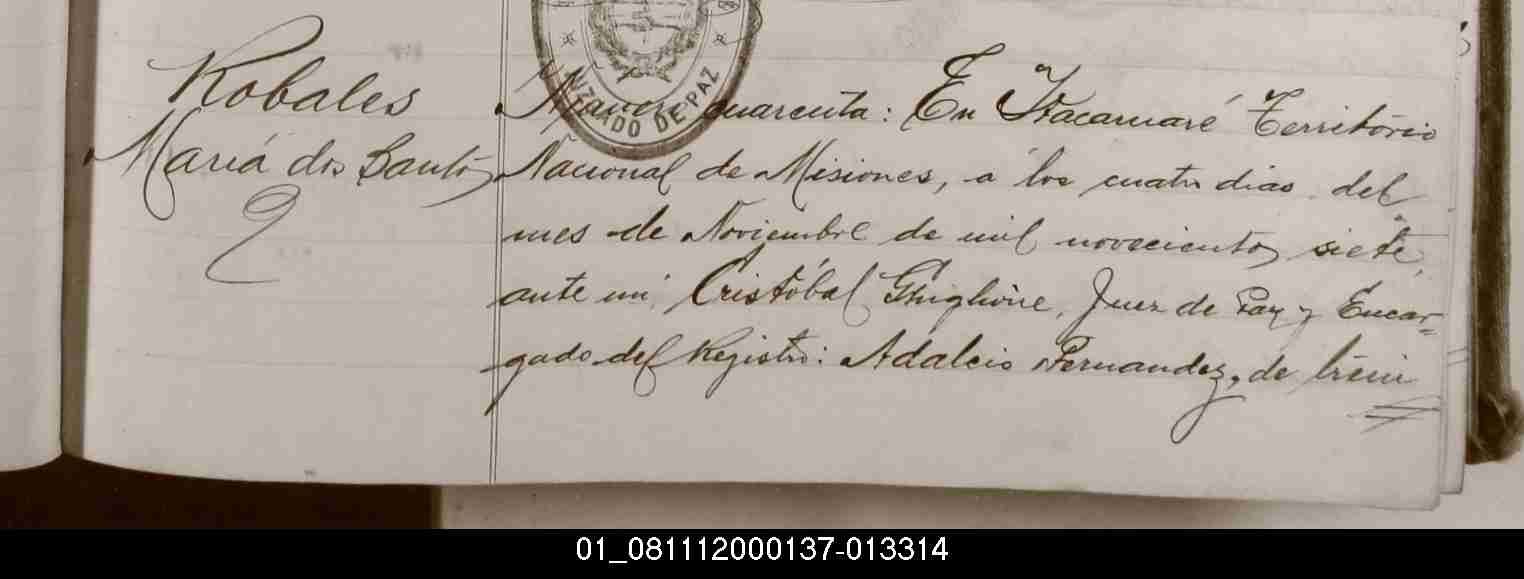 JUZGADO DE PAZ
Robales
María dos Santos
Número cuarenta: En Itacaruaré Territorio
Nacional de Misiones, a los cuatro dias del
mes de Noviembre de mil novecientos siete,
ante mi, Cristóbal Ghiglione, Juez de Paz y Encar-
gado del Registro: Adalcio Fernandez, de trein
01_081112000137-013314